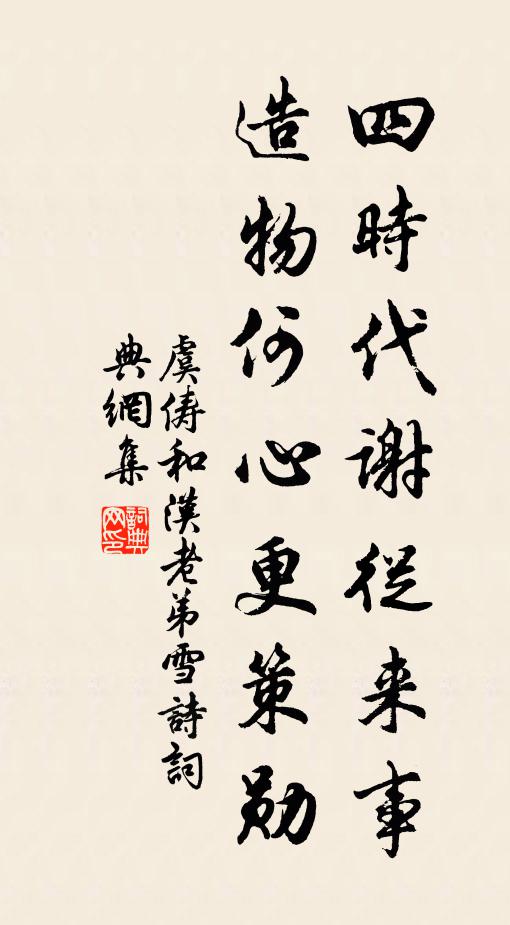 四時代謝從来事
造物何心更策勛
虞儔和漢老弟雪詩詞
典網集
詞典
网印